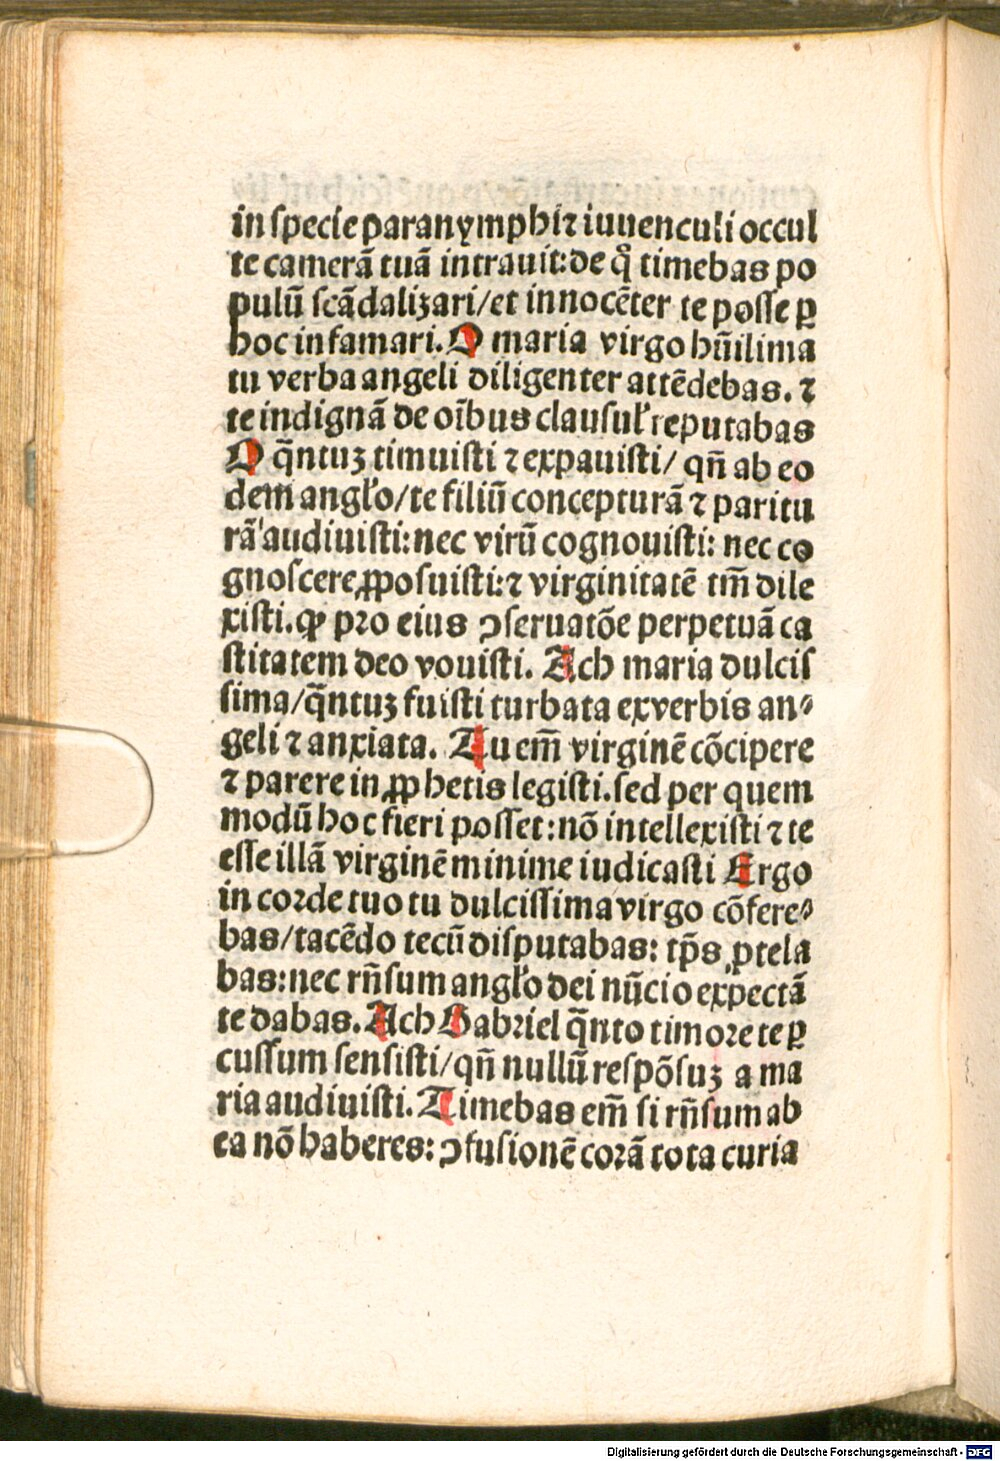 in specie paranymphi ⁊ iuuenculi occul
te camerā tuā intrauit: de qͦ timebas po
pulū scādalizari/et innocēter te posse ꝑ
hoc infamari. O maria virgo hūilima
tu verba angeli diligenter attēdebas. ⁊
te indignā de oībus clausuł reputabas
O q̄ntuꝫ timuisti ⁊ expauisti/ qn̄ ab eo
dem angło/te filiū concepturā ⁊ paritu
rā audiuisti: nec virū cognouisti: nec co
gnoscere ꝓposuisti: ⁊ virginitatē tm̄ dile
xisti. ꝙ pro eius ꝯseruatōe perpetuā ca
stitatem deo vouisti. Ach maria dulcis
sima/q̄ntuꝫ fuisti turbata ex verbis an⸗
geli ⁊ anxiata. Tu em̄ virginē cōcipere
⁊ parere in ꝓphetis legisti. sed per quem
modū hoc fieri posset: nō intellexisti ⁊ te
esse illā virginē minime iudicasti Ergo
in corde tuo tu dulcissima virgo cōfere⸗
bas/tacēdo tecū disputabas: tp̄s ꝓtela
bas: nec rn̄sum angło dei nūcio expectā
te dabas. Ach Gabriel q̄nto timore te ꝑ
cussum sensisti/qn̄ nullū respōsuꝫ a ma
ria audiuisti. Timebas em̄ si rn̄sum ab
ea nō haberes: ꝯfusionē corā tota curia
Digitalisierung gefördert durch die Deutsche Forschungsgemeinschaft - DFG